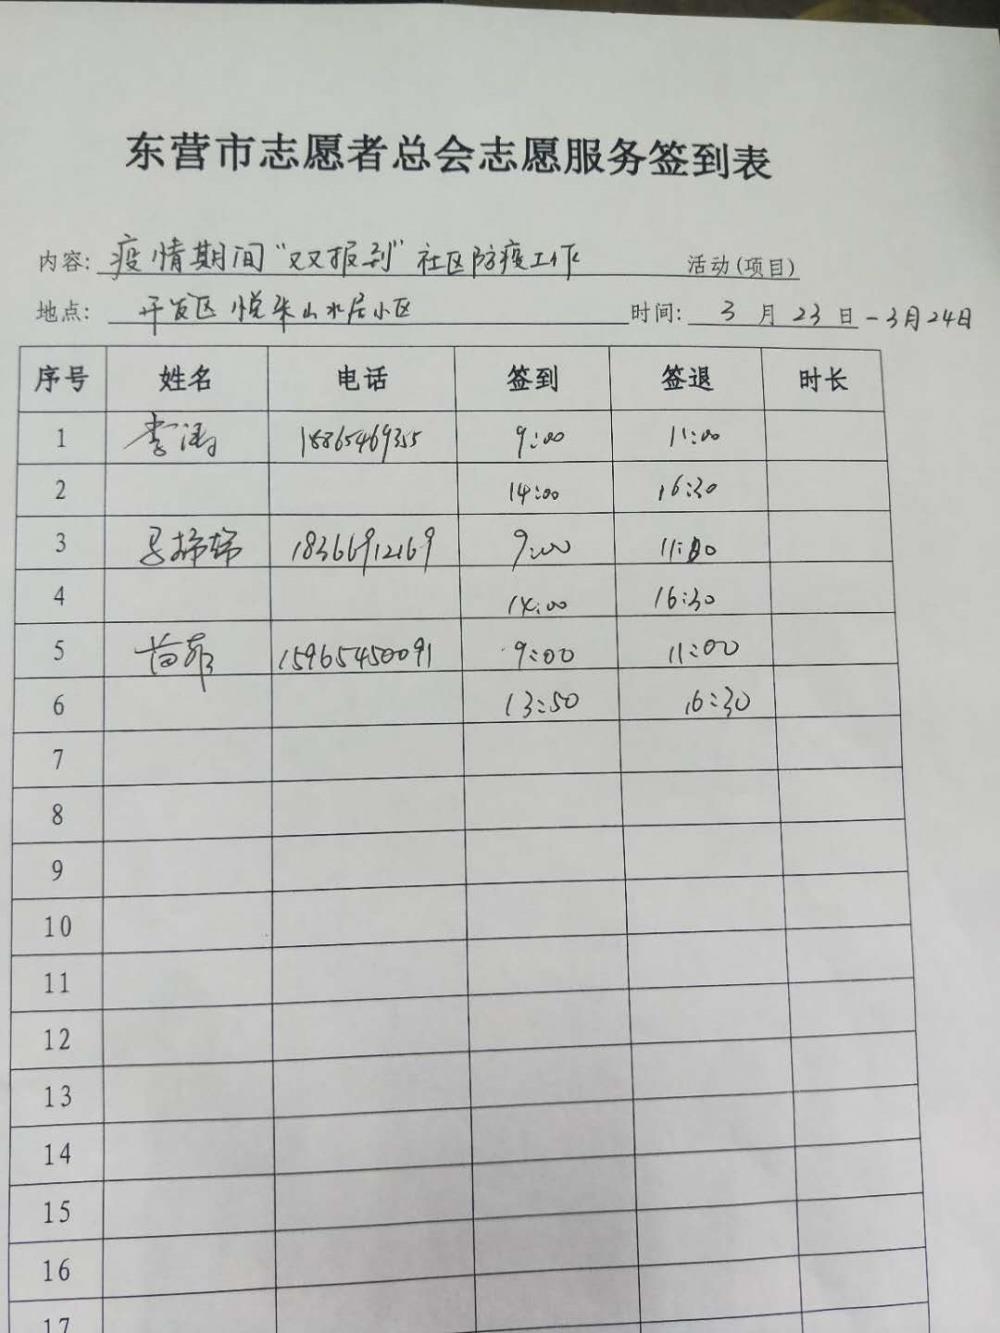 东营市志愿者总会志愿服务签到表
内容: 疫情期间“双双报到”社区防疫工作 活动(项目)
地点: 开发区悦来山水居小区 时间: 3月23日-3月24日
序号 姓名 电话 签到 签退 时长
1 李涛 18865469355 9:00 11:00
2 14:00 16:30
3 18366912169 9:00 11:00
4 14:00 16:30
5 15965450091 9:00 11:00
6 13:50 16:30
7
8
9
10
11
12
13
14
15
16
17